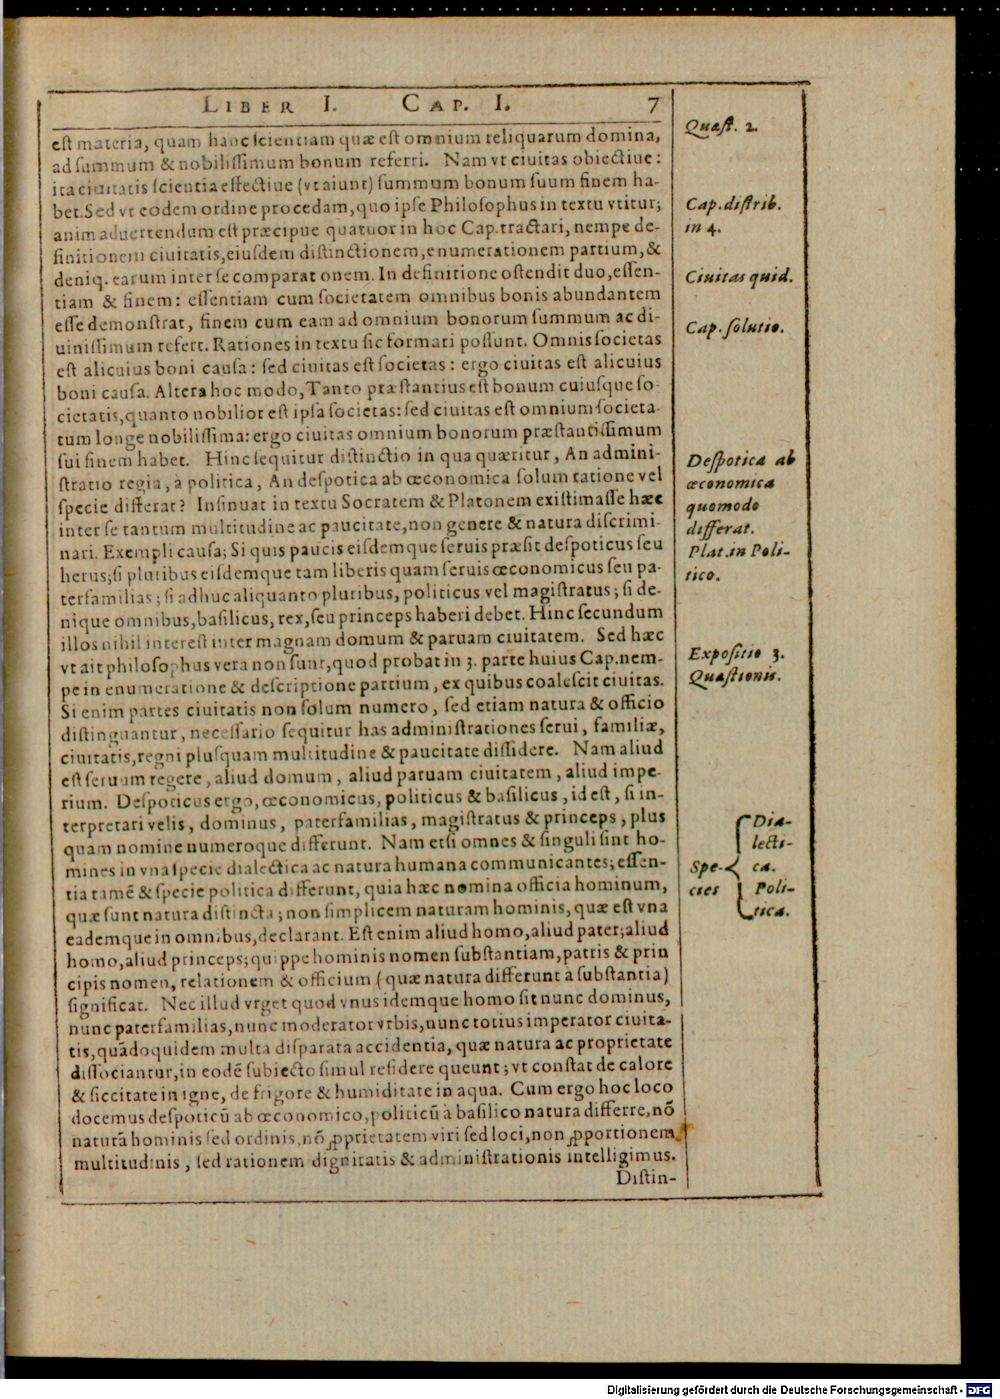 LIBER I. CAP. I. 7
est materia, quam hanc scientiam quæ est omnium reliquarum domina,
ad summum & nobilissimum bonum referri. Nam vt ciuitas obiectiue:
ita ciuitatis scientia effectiue (vt aiunt) summum bonum suum finem ha-
bet. Sed vt eodem ordine procedam, quo ipse Philosophus in textu vtitur;
animaduertendum est præcipue quatuor in hoc Cap. tractari, nempe de-
finitionem ciuitatis, eiusdem distinctionem, enumerationem partium, &
deniq. earum inter se comparat onem. In definitione ostendit duo, essen-
tiam & finem: essentiam cum societatem omnibus bonis abundantem
esse demonstrat, finem cum eam ad omnium bonorum summum ac di-
uinissimum refert. Rationes in textu sic formari possunt. Omnis societas
est alicuius boni causa: sed ciuitas est societas: ergo ciuitas est alicuius
boni causa. Altera hoc modo, Tanto præstantius est bonum cuiusque so-
cietatis, quanto nobilior est ipsa societas: sed ciuitas est omnium societa-
tum longe nobilissima: ergo ciuitas omnium bonorum præstantissimum
sui finem habet. Hinc sequitur distinctio in qua quæritur, An admini-
stratio regia, à politica, An despotica ab œconomica solum ratione vel
specie differat? Insinuat in textu Socratem & Platonem existimasse hæc
inter se tantum multitudine ac paucitate, non genere & natura discrimi-
nari. Exempli causa; Si quis paucis eisdemque seruis præsit despoticus seu
herus; si pluribus eisdemque tam liberis quam seruis œconomicus seu pa-
terfamilias; si adhuc aliquanto pluribus, politicus vel magistratus; si de-
nique omnibus, basilicus, rex, seu princeps haberi debet. Hinc secundum
illos nihil interest inter magnam domum & paruam ciuitatem. Sed hæc
vt ait philosophus vera non sunt, quod probat in 3. parte huius Cap. nem-
pe in enumeratione & descriptione partium, ex quibus coalescit ciuitas.
Si enim partes ciuitatis non solum numero, sed etiam natura & officio
distinguantur, necessario sequitur has administrationes serui, familiæ,
ciuitatis, regni plusquam multitudine & paucitate dissidere. Nam aliud
est seruum regere, aliud domum, aliud paruam ciuitatem, aliud impe-
rium. Despoticus ergo, œconomicus, politicus & basilicus, id est, si in-
terpretari velis, dominus, paterfamilias, magistratus & princeps, plus
quam nomine numeroque differunt. Nam etsi omnes & singuli sint ho-
mines in vna specie dialectica ac natura humana communicantes; essen-
tia tamē & specie politica differunt, quia hæc nomina officia hominum,
quæ sunt natura distincta; non simplicem naturam hominis, quæ est vna
eademque in omnibus, declarant. Est enim aliud homo, aliud pater; aliud
homo, aliud princeps; quippe hominis nomen substantiam, patris & prin
cipis nomen, relationem & officium (quæ natura differunt à substantia)
significat. Nec illud vrget quod vnus idemque homo sit nunc dominus,
nunc paterfamilias, nunc moderator vrbis, nunc totius imperator ciuita-
tis, quādoquidem multa disparata accidentia, quæ natura ac proprietate
dissociantur, in eodē subiecto simul residere queunt; vt constat de calore
& siccitate in igne, de frigore & humiditate in aqua. Cum ergo hoc loco
docemus despoticū ab œconomico, politicū à basilico natura differre, nō
naturā hominis sed ordinis, nō ꝓprietatem viri sed loci, non ꝓportionem
multitudinis, sed rationem dignitatis & administrationis intelligimus.
Distin-
Quæst. 2.
Cap. distrib.
in 4.
Ciuitas quid.
Cap. solutio.
Despotica ab
œconomica
quomodo
differat.
Plat. in Poli-
tico.
Expositio 3.
Quæstionis.
Spe-
cies
Dia-
lecti-
ca.
Poli-
tica.
Digitalisierung gefördert durch die Deutsche Forschungsgemeinschaft - DFG